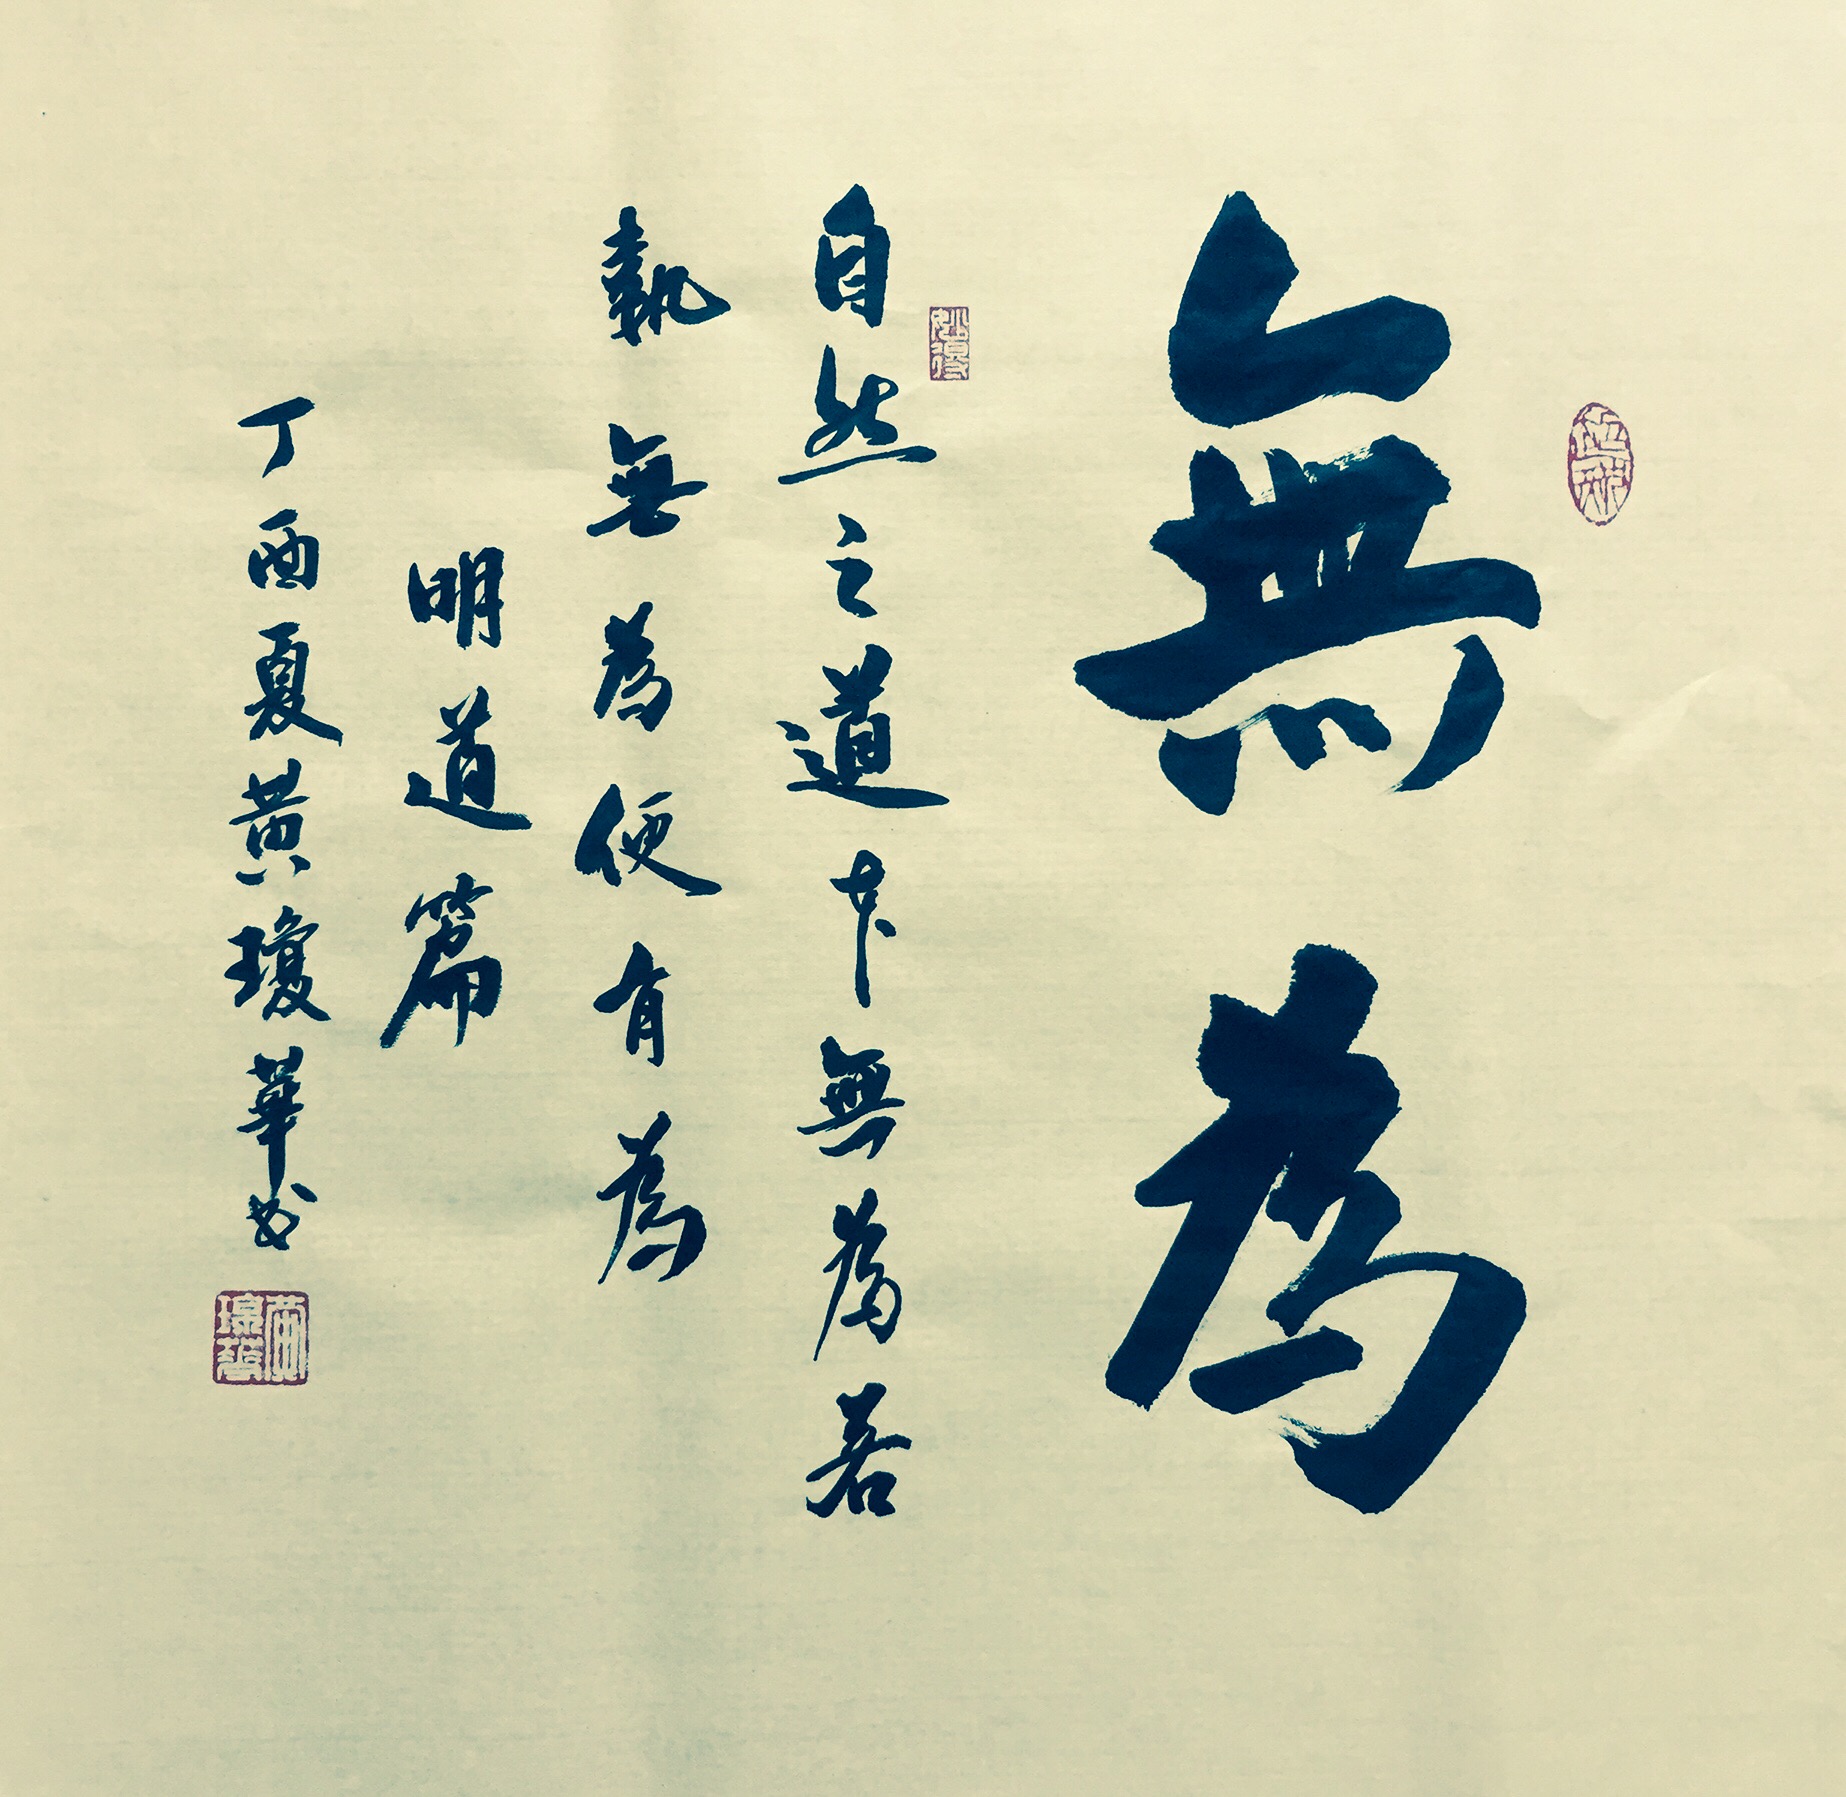 無為
妙得
自然之道本無為若
執無為便有為
明道篇
丁酉夏黃瓊華書
黃瓊華